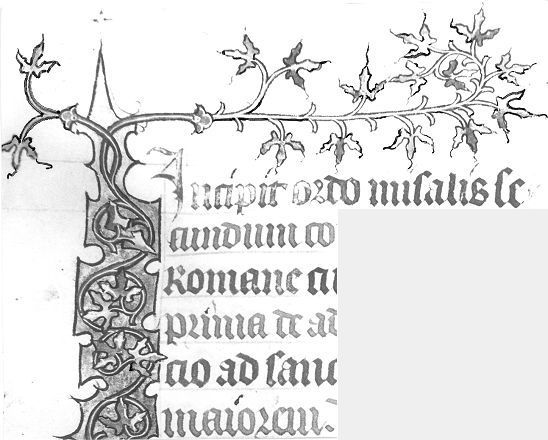 Incipit ordo misalis se
cundum co
Romane cu
prima de ad
cio ad sanc
maiorem.